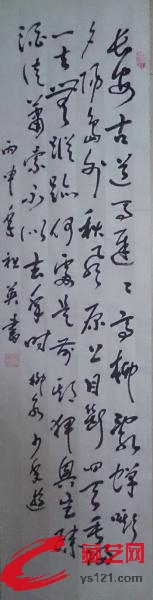 长安古道马迟迟高柳乱蝉嘶
夕阳岛外秋风原上目断四天垂
一去无踪迹何处是前期狎兴生疏
酒徒萧索不似去年时 柳永少年游
丙申年 英书
ys121.com